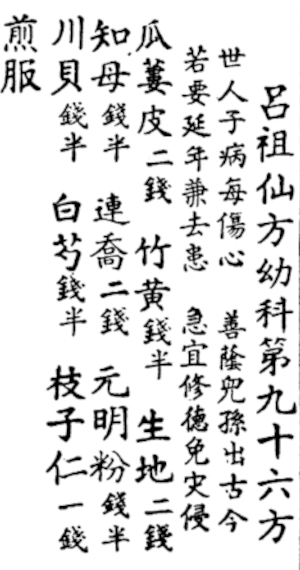 呂祖仙方幼科第九十六方
世人子病每傷心 善蔭兒孫出古今
若要延年兼去患 急宜修德免灾侵
瓜蔞皮二錢 竹黄錢半 生地二錢
知母錢半 連喬二錢 元明粉錢半
川貝錢半 白芍錢半 枝子仁一錢
煎服